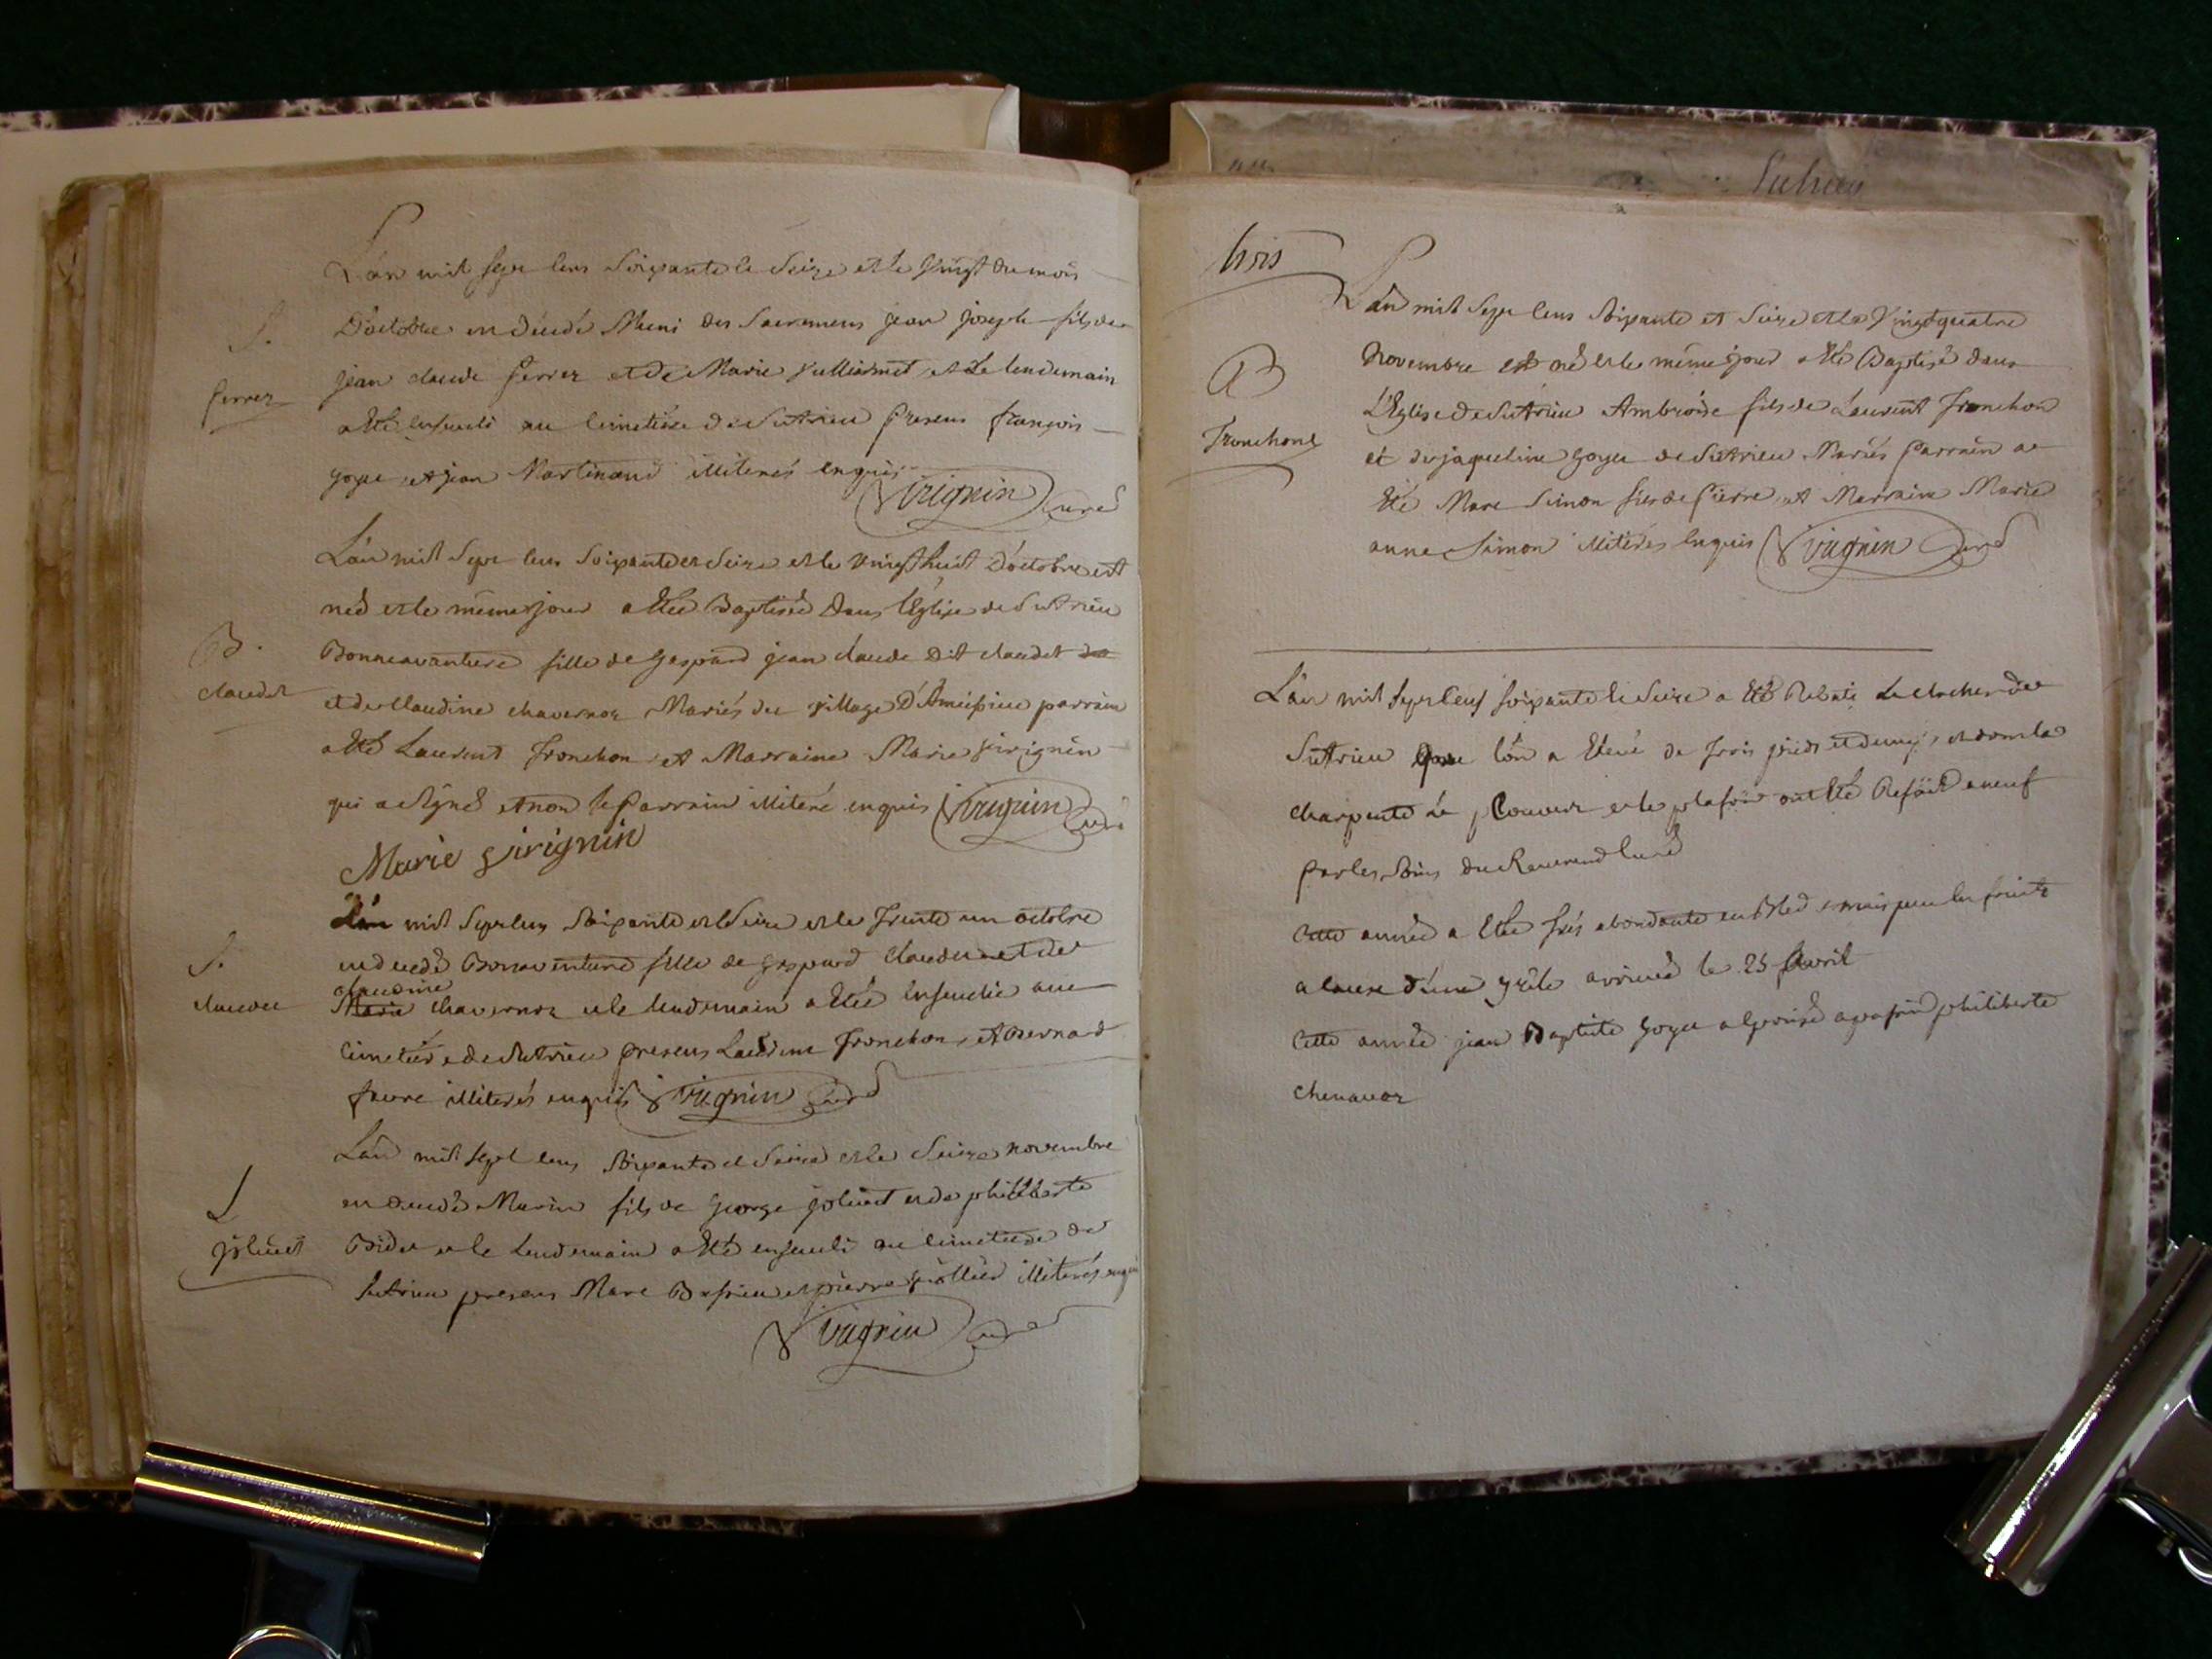 L'an mil sept cens soixante et seize et le vingt du mois
S.
D'octobre en décédé Muni des Sacremens jean joseph fils de
jean claude ferrer et de Marie et le lendemain
ferrer
a été enseveli au cimetière de Sutrieu presens françois
goyet et jean Martinand illiterés enquis
Virignin curé
L'an mil sept cens soixante et seize et le vingt huit D'octobre est
née et le même jour a été Baptisée Dans l'Eglise de Sutrieu
B.
Bonneavanture fille de Gaspard jean claude dit claudet de
claudet
et de Claudine chavernoz Mariés du village D'Améysieu parrain
a été Laurent Tronchon et Marraine Marie virignin
qui a signé et non le Parrain illiteré enquis Virignin curé
Marie virignin
L'an mil sept cens soixante et seize et le trente un octobre
S.
en décédé Bonnaventure fille de Gaspard claudet et de
claudine
claudet
Marie chavernoz et le lendemain a été ensevelie au
cimetière de Sutrieu presens Laurent Tronchon et Bernard
favre illiterés enquis Virignin curé
L'an mil sept cens soixante et seize et le seize novembre
S
en décédé Marin fils de George joliuet et de philiberte
joliuet
Bidet et le lendemain a été enseveli au cimetière de
Sutrieu presens Marc et pierre illiterés enquis
Virignin curé
trois
L'an mil sept cens soixante et seize et le vingt quatre
B
Novembre est né et le même jour a été Baptisé dans
L'Eglise de Sutrieu Ambroise fils de Laurent Tronchon
Tronchon
et de jaqueline goyet de Sutrieu Mariés Parrain a
été Marc Simon fils de Pierre et Marraine Marie
anne Simon illiterés enquis Virignin curé
L'an mil sept cens soixante et seize a été Rebati Le clocher de
Sutrieu que l'on a élevé de trois pieds et demy et dont la
charpente Le couvert et le plafon ont été Refait aneuf
par les Soins du Reverend curé
Cette année a été très abondante en Bled mais peu en fruits
a cause d'une grêle arrivée le 25 Avril
Cette année jean Baptiste goyet a épousé philiberte
chenavaz